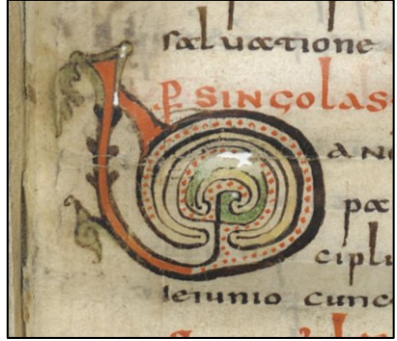 saluatione
ꝑ SINGOLAS
DA N
pa
cipli
ieiunio cunc